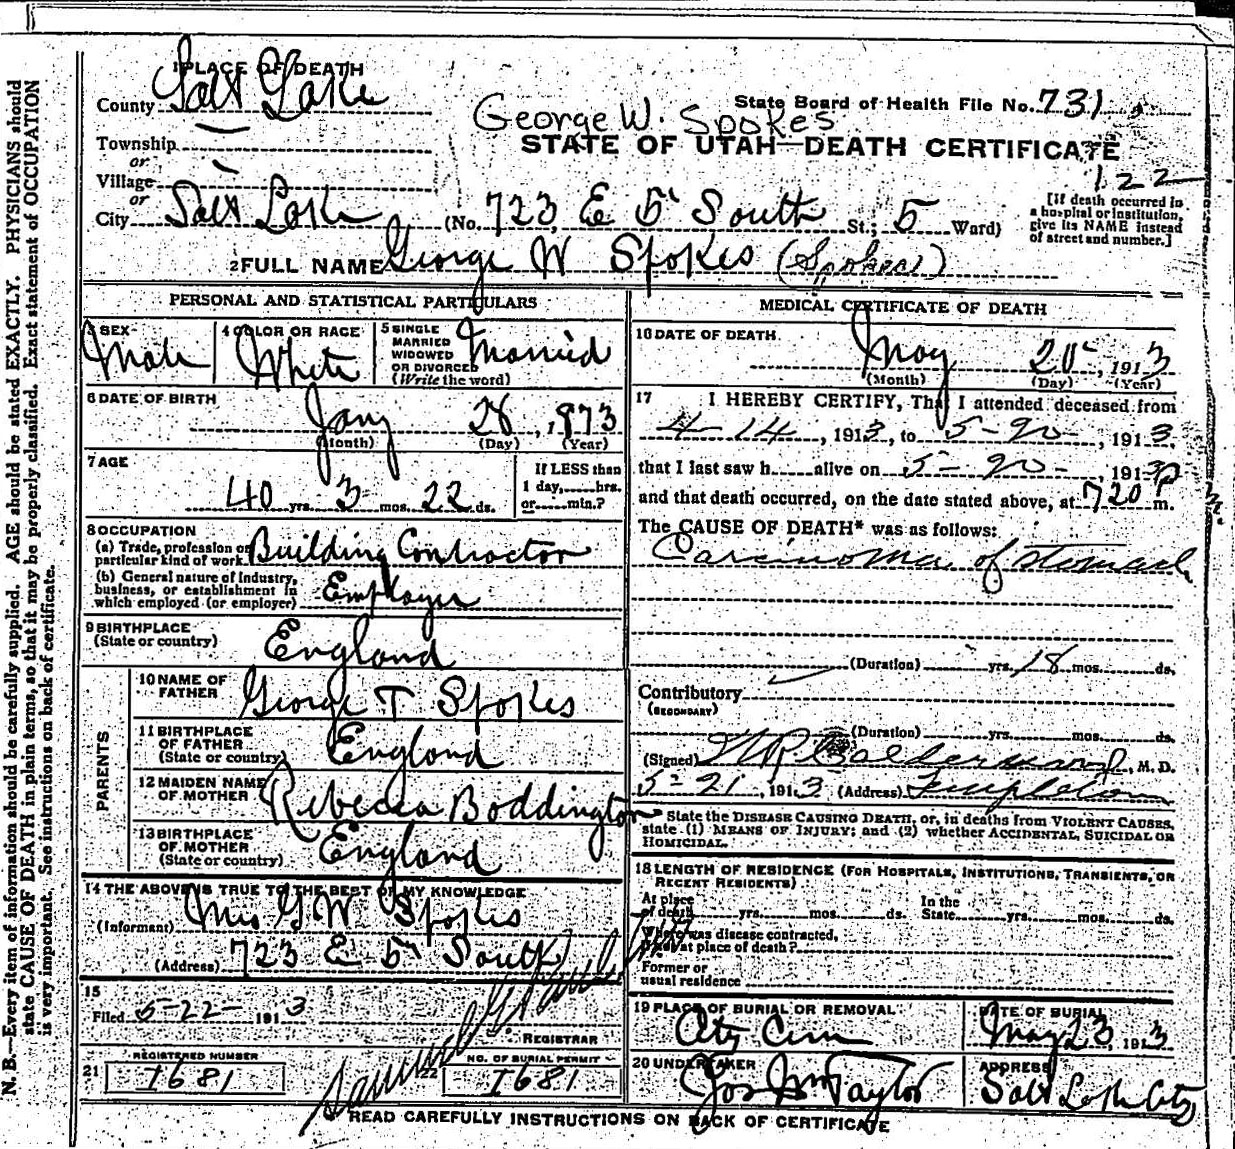 1 PLACE OF DEATH
County Salt Lake
State Board of Health File No. 731
George W. Spokes
Township
or
STATE OF UTAH—DEATH CERTIFICATE
122
Village
or
City Salt Lake (No. 723, E 5" South St.; 5 Ward)
[If death occurred in a hospital or institution, give its NAME instead of street and number.]
2 FULL NAME George W Spokes (Spokes)
PERSONAL AND STATISTICAL PARTICULARS
3 SEX Male
4 COLOR OR RACE White
5 SINGLE MARRIED WIDOWED OR DIVORCED (Write the word) Married
6 DATE OF BIRTH
Jany 28, 1873
(Month) (Day) (Year)
7 AGE
40 yrs. 3 mos. 22 ds.
If LESS than 1 day, hrs. or min.?
8 OCCUPATION
(a) Trade, profession or particular kind of work Building Contractor
(b) General nature of Industry, business, or establishment in which employed (or employer) Employer
9 BIRTHPLACE
(State or country) England
PARENTS
10 NAME OF FATHER George T Spokes
11 BIRTHPLACE OF FATHER (State or country) England
12 MAIDEN NAME OF MOTHER Rebecca Boddington
13 BIRTHPLACE OF MOTHER (State or country) England
14 THE ABOVE IS TRUE TO THE BEST OF MY KNOWLEDGE
(Informant) Mrs G W Spokes
(Address) 723 E 5" South
15
Filed 5-22- 1913
REGISTRAR
REGISTERED NUMBER
21 1681
NO. OF BURIAL PERMIT
22 1681
MEDICAL CERTIFICATE OF DEATH
16 DATE OF DEATH
May 20, 1913
(Month) (Day) (Year)
17 I HEREBY CERTIFY, That I attended deceased from
4-14, 1913, to 5-20-, 1913,
that I last saw h alive on 5-20-, 1913,
and that death occurred, on the date stated above, at 720 P m.
The CAUSE OF DEATH* was as follows:
Carcinoma of stomach
(Duration) yrs. 18 mos. ds.
Contributory
(SECONDARY)
(Duration) yrs. mos. ds.
(Signed) , M. D.
5-21, 1913 (Address) Templeton
* State the DISEASE CAUSING DEATH, or, in deaths from VIOLENT CAUSES, state (1) MEANS OF INJURY; and (2) whether ACCIDENTAL, SUICIDAL OR HOMICIDAL.
18 LENGTH OF RESIDENCE (FOR HOSPITALS, INSTITUTIONS, TRANSIENTS, OR RECENT RESIDENTS)
At place of death yrs. mos. ds. In the State yrs. mos. ds.
Where was disease contracted, if not at place of death?
Former or usual residence
19 PLACE OF BURIAL OR REMOVAL City Cem
DATE OF BURIAL May 23, 1913
20 UNDERTAKER Jos Wm Taylor
ADDRESS Salt Lake City
READ CAREFULLY INSTRUCTIONS ON BACK OF CERTIFICATE
N. B.—Every item of information should be carefully supplied. AGE should be stated EXACTLY. PHYSICIANS should state CAUSE OF DEATH in plain terms, so that it may be properly classified. Exact statement of OCCUPATION is very important. See instructions on back of certificate.